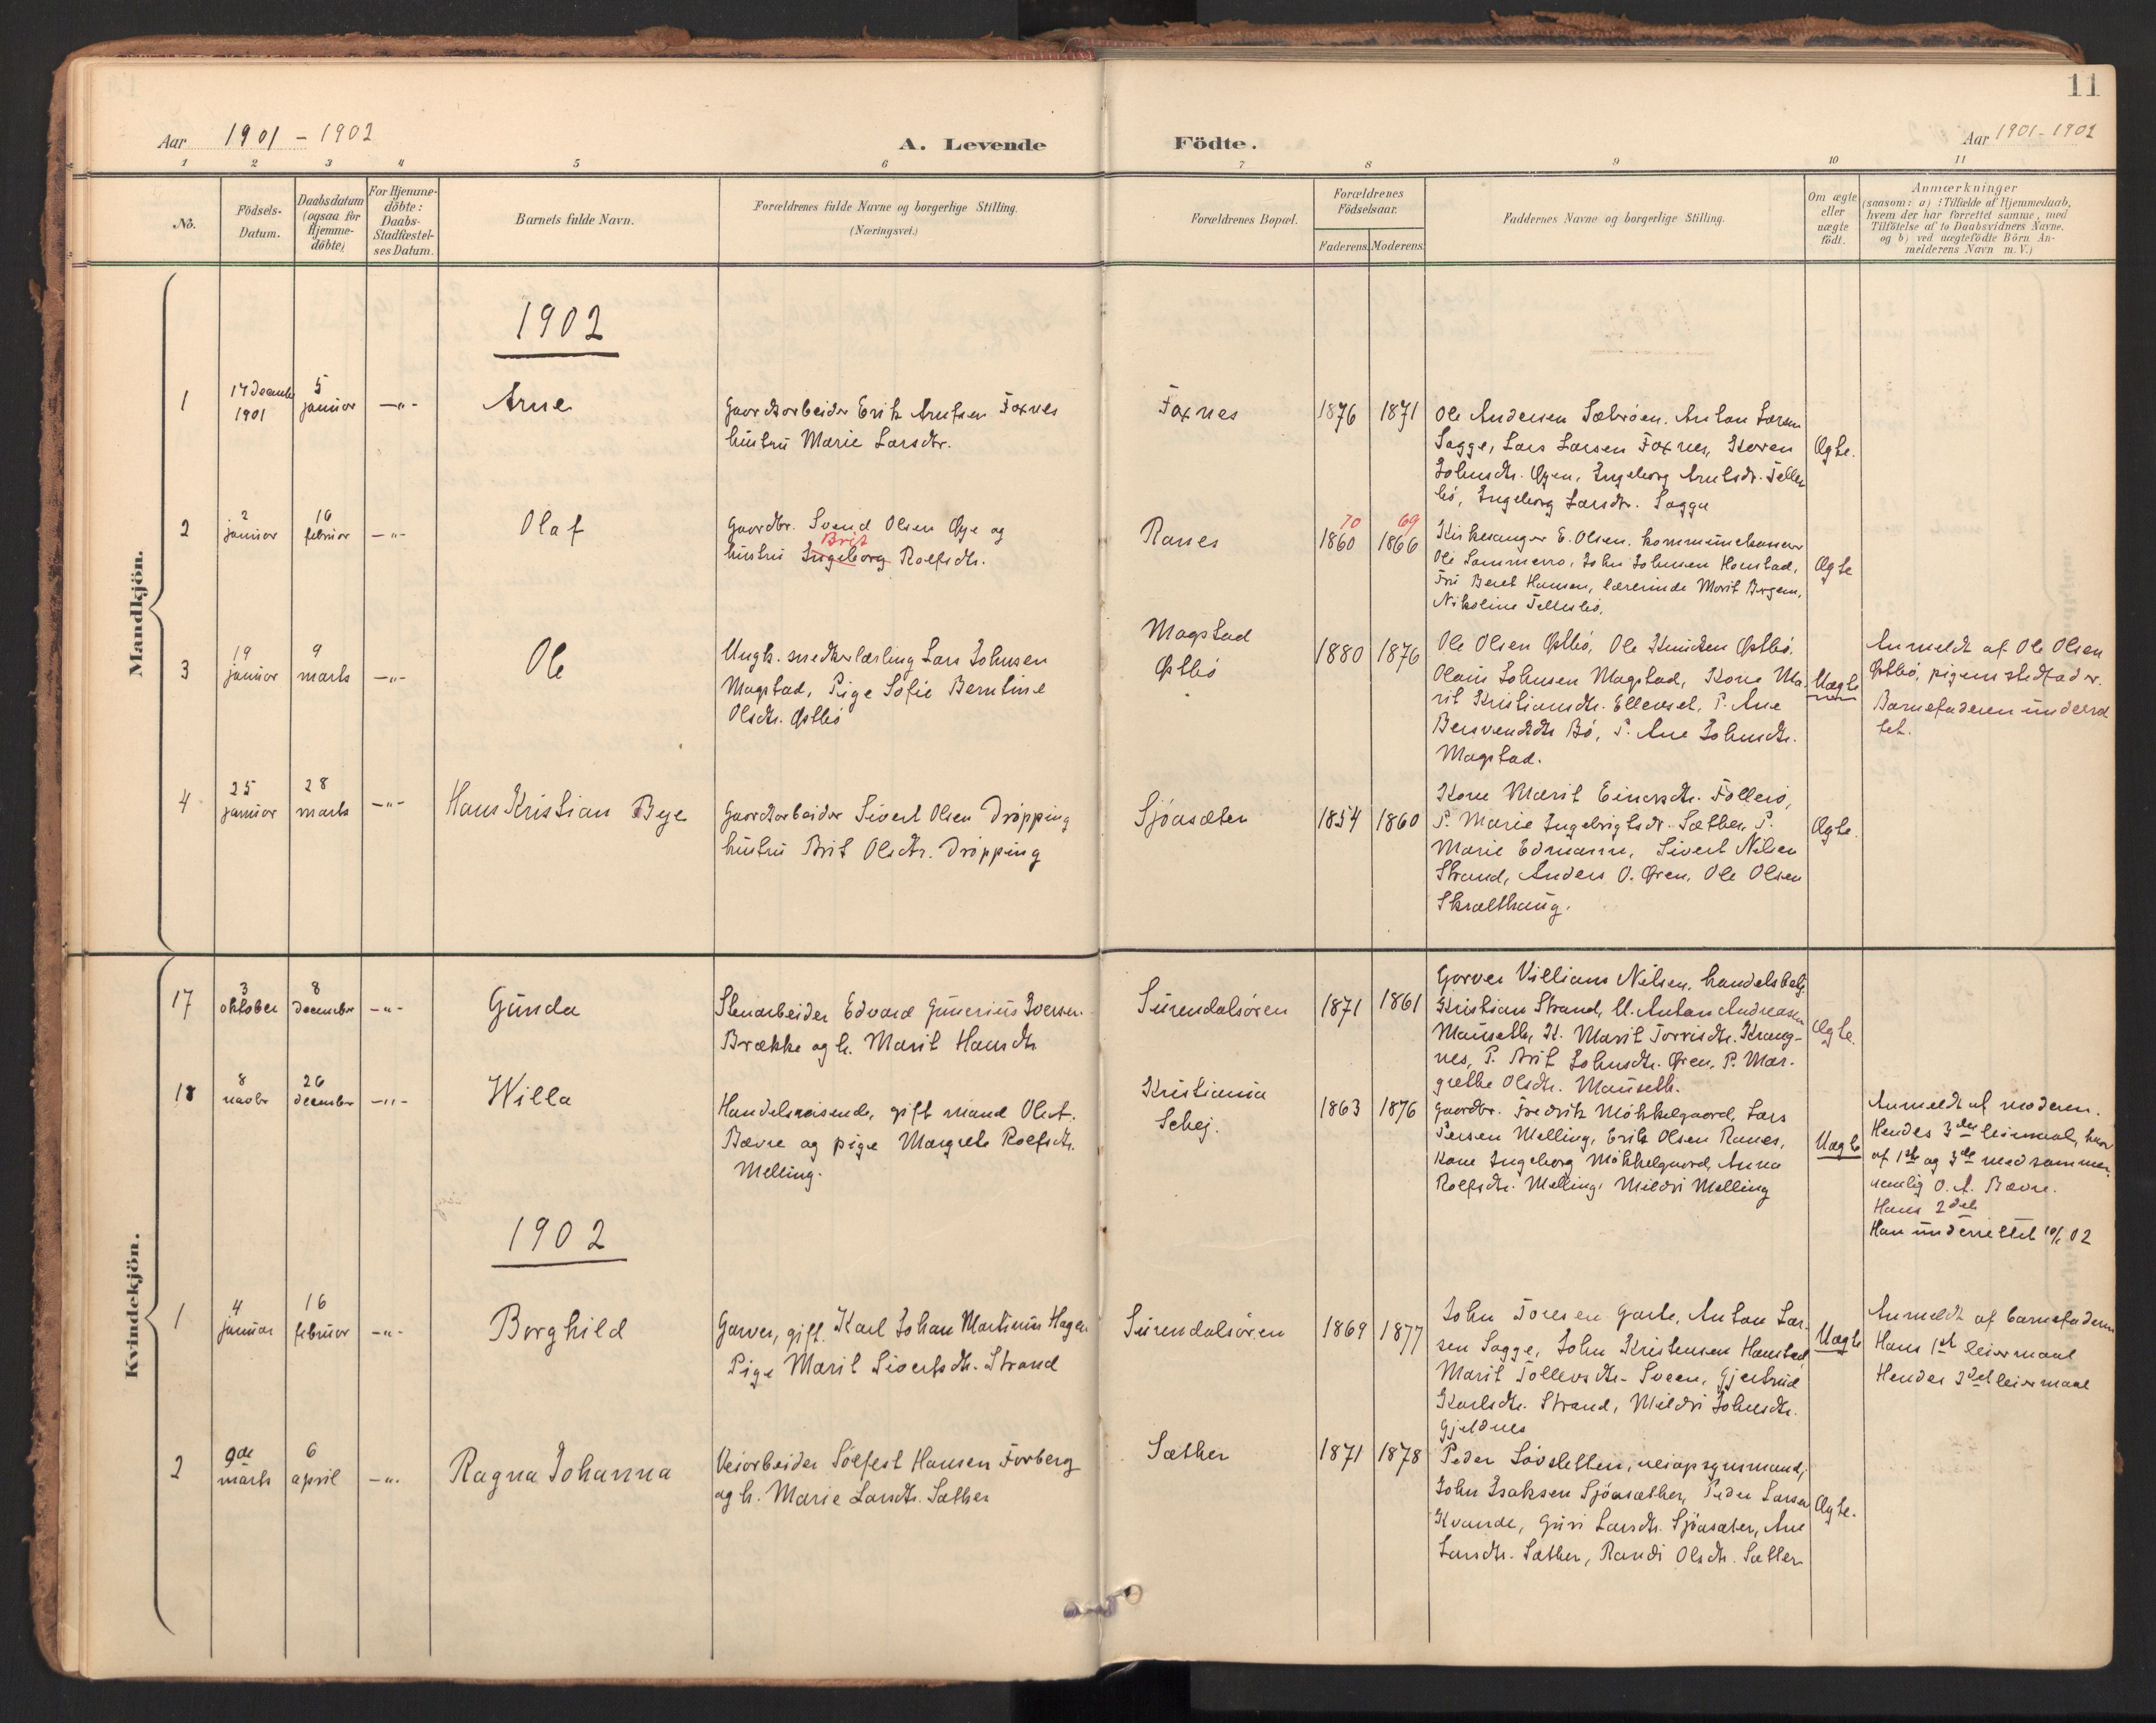 11
Aar 1901 - 1902
A. Levende Födte.
Aar 1901-1902
1 2 3 4 5 6 7 8 9 10 11
No.
Födsels-
Datum.
Daabsdatum
(ogsaa for
Hjemme-
döbte)
For Hjemme-
döbte:
Daabs-
Stadfæstel-
ses Datum.
Barnets fulde Navn.
Forældrenes fulde Navne og borgerlige Stilling.
(Næringsvei.)
Forældrenes Bopæl.
Forældrenes
Födselsaar.
Faderens. Moderens.
Faddernes Navne og borgerlige Stilling.
Om ægte
eller
uægte
födt.
Anmærkninger
(saasom: a) i Tilfælde af Hjemmedaab,
hvem der har forrettet samme, med
Tilföielse af to Daabsvidners Navne.
og b) ved uægtefödte Börn An-
melderens Navn m. V.)
Mandkjön.
1902
1
17 decembr
1901
5
januar
-"-
Arne
Gaardarbeider Erik Arntsen Foxnes
hustru Marie Larsdtr.
Foxnes
1876 1871
Ole Andersen Sæbröen. Anton Larsen
Sagge, Lars Larsen Foxnes, Karen
Johnsdtr. Øyen, Ingeborg Arntsdr. Telles
bö, Ingeborg Larsdtr. Sagge
Ægte.
2
2
januar
16
februar
-"-
Olaf
Gaardbr. Svend Olsen Øye og
Brit
hustru Ingeborg Roelfsdtr.
Ranes
70 69
1860 1866
Kirkesanger E. Olsen. kommunekasserer
Ole Sammerro, John Johnsen Honstad,
Fru Beret Hansen, lærerinde Marit Bergem,
Nikoline Tellesbö.
Ægte
3
19
januar
9
marts
-"-
Ole
Ungk. snedkerlærling Lars Johnsen
Mogstad, Pige Sofie Berntine
Olsdtr. Østbö
Mogstad
Østbö
1880 1876
Ole Olsen Østbö, Ole Knudsen Østbö.
Olaus Johnsen Mogstad, Kone Ma-
rit Kristiansdtr. Ellevset, P. Ane
Bersvendsdtr Bö, P. Ane Johnsdtr.
Mogstad.
Uægte
Anmeldt af Ole Olsen
Østbö, pigens stedfader.
Barnefaderen underret
tet.
4
25
januar
28
marts
-"-
Hans Kristian Bye
Gaardarbeider Sivert Olsen Dröpping
hustru Brit Olsdtr. Dröpping
Sjöasæter
1854 1860
Kone Marit Einarsdtr. Follerö,
P. Marie Ingebrigtsdr. Sæther. P.
Marie Edmann, Sivert Nilsen
Strand, Anders O. Øren. Ole Olsen
Skralthaug.
Ægte.
Kvindekjön.
17
3
oktober
8
december
-"-
Gunda
Stenarbeider Edvard Gunerius Iversen
Brække og h. Marit Hansdtr
Surendalsören
1871 1861
Garver Villiams Nilsen, handelsbetj.
Kristian Strand, U. Anton Andreasen
Mauseth, K. Marit Torrisdtr. Krang-
nes, P. Brit Johnsdtr. Øren, P. Mar-
grethe Olsdtr. Mauseth.
Ægte.
18
8
novbr
26
december
-"-
Willa
Handelsreisende, gift mand Ole A.
Bævre og pige Margrete Roelfsdtr.
Melling.
Kristiania
Schej.
1863 1876
Gaardbr. Fredrik Mökkelgaard, Lars
Persen Melling, Erik Olsen Ranes,
Kone Ingeborg Mökkelgaard, Anna
Roelfsdtr. Melling, Mildri Melling
Uægte
Anmeldt af moderen.
Hendes 3die leiermaal, hvor
af 1ste og 3die med samme,
nemlig O. A. Bævre.
Hans 2det
Han underrettet 10/1 02
1902
1
4
januar
16
februar
-"-
Borghild
Garver, gift. Karl Johan Martinus Hagen
Pige Marit Sivertsdtr. Strand
Surendalsören
1869 1877
John Toresen Garte, Anton Lar-
sen Sagge, John Kristensen Honstad
Marit Tollevsdtr. Sveen, Gjertrud
Karlsdtr. Strand, Mildri Johnsdtr.
Gjeldnes
Uægte
Anmeldt af barnefaderen
Hans 1ste leiermaal
Hendes 2det leiermaal
2
9de
marts
6
april
-"-
Ragna Johanna
Veiarbeider Solfest Hansen Forberg
og h. Marie Larsdtr. Sæther
Sæther
1871 1878
Peder Lövsletten, veiopsynsmand,
John Isaksen Sjöasæther, Peder Larsen
Kvande, Guri Larsdtr. Sjöasæter, Ane
Larsdtr. Sæther, Randi Olsdtr. Sæther
Ægte.